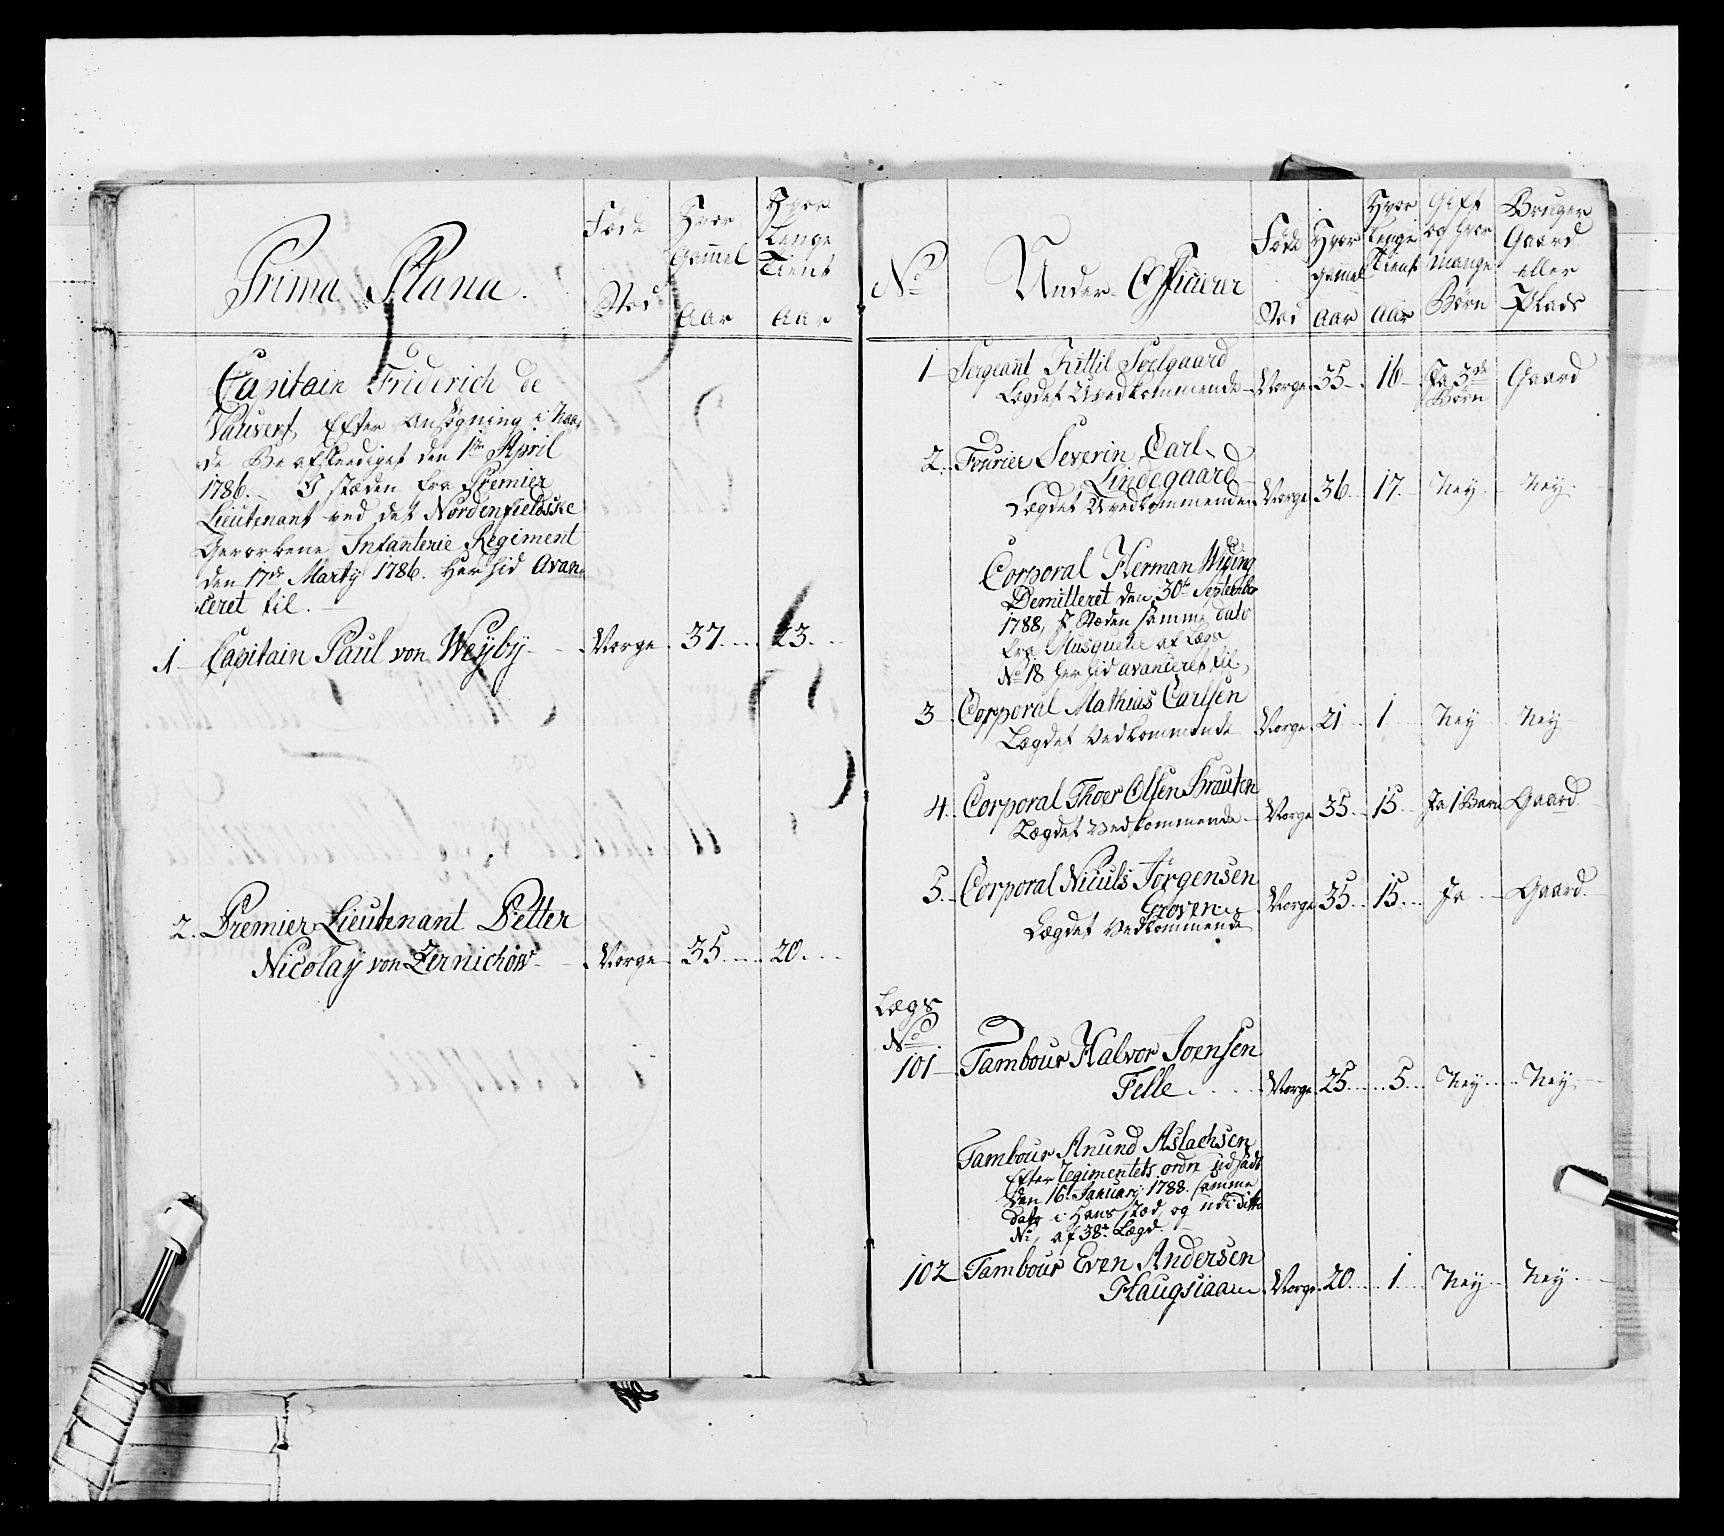 Prima Plana.
Føde
Stæd
Hvor
Gammel
Aar
Hvor
Længe
Tient
Aar
Capitain Friderich de
Vauvert, Efter Ansøgning i Naa-
de Be afskeediget den 1ste April
1786. I stæden fra Premier
Lieutenant ved det Nordenfieldske
Gevorbene Infanterie Regiment
den 17de Marty 1786. Her hid Avan-
ceret til.
1 Capitain Paul von Weyby Norge 37 23
2. Premier Lieutenant Petter
Nicolay von Zernichow Norge 35 20
No
Under Officierer
Føde
Stæd
Hvor
gammel
Aar
Hvor
Lenge
Tient
Aar
Gift
og hvor
Mange
Børn
Bruger
Gaard
eller
Plads
1 Sergeant Kittil Soelgaard
Lægdet Uvedkommende Norge 35 16 Ja 3de Børn Gaard
2. Fourier Severin Carl
Lindegaard
Lægdet Uvedkommende Norge 36 17 Ney Ney
Corporal Herman Wiing
Demitteret den 30te September
1788, I Stæden samme dato
fra Musqueteer af Lægs
No 18 her hid avanceret til,
3 Corporal Mathias Carlsen
Lægdet Vedkommende Norge 21 1 Ney Ney
4. Corporal Thoer Olsen Brauten
Lægdet Vedkommende Norge 35 15 Ja 1 Barn Gaard
5. Corporal Niculs Jørgensen
Groven
Lægdet Vedkommende Norge 35 15 Ja Gaard
Lægs
No
101 Tambour Halvor Joensen
Felle Norge 25 5 Ney Ney
Tambour Anund Aslachsen
Efter Regimentets ordre udsadt
den 16 Januari 1788. samme
dato i Hans stæd, og udi ditto
No, af 38te Lægd.
102 Tambour Even Andersen
Haugsiaan Norge 20 1 Ney Ney